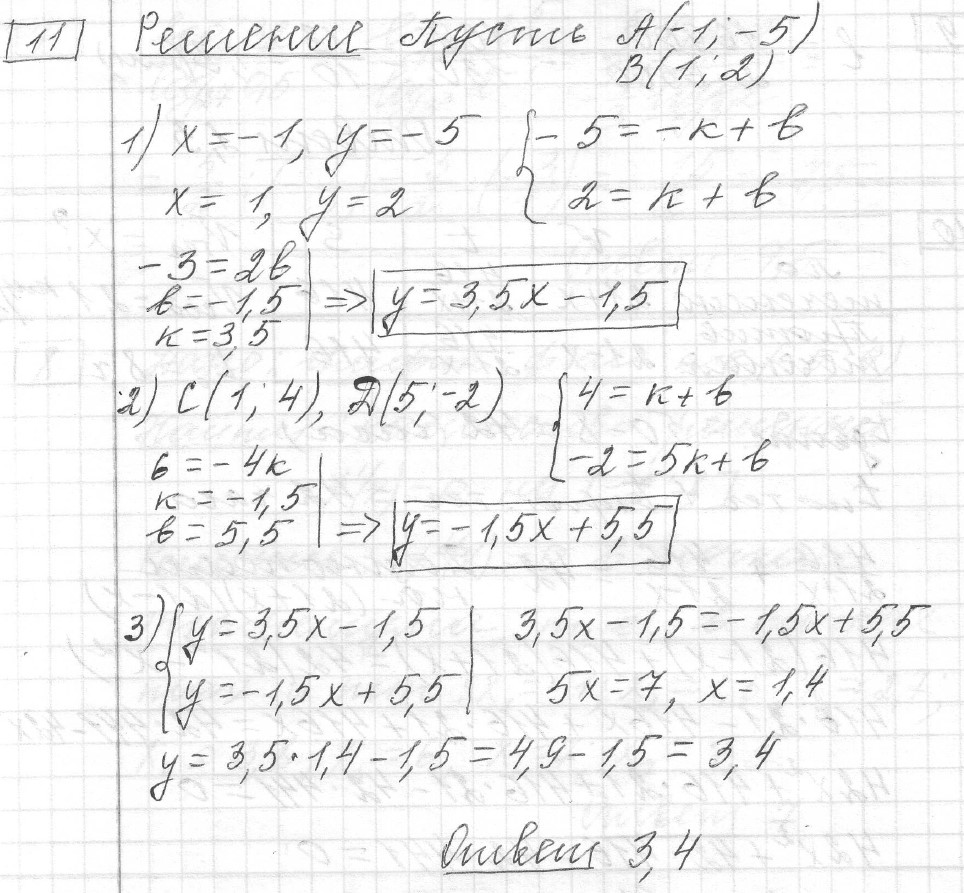 11 Решение Пусть A(-1; -5)
B(1; 2)
1) x = -1, y = -5 { -5 = -к + в
x = 1, y = 2 2 = к + в
-3 = 2в
в = -1,5 => y = 3,5x - 1,5
к = 3,5
2) C(1; 4), D(5; -2) { 4 = к + в
6 = -4к -2 = 5к + в
к = -1,5
в = 5,5 => y = -1,5x + 5,5
3) { y = 3,5x - 1,5 | 3,5x - 1,5 = -1,5x + 5,5
y = -1,5x + 5,5 | 5x = 7, x = 1,4
y = 3,5 · 1,4 - 1,5 = 4,9 - 1,5 = 3,4
Ответ 3,4